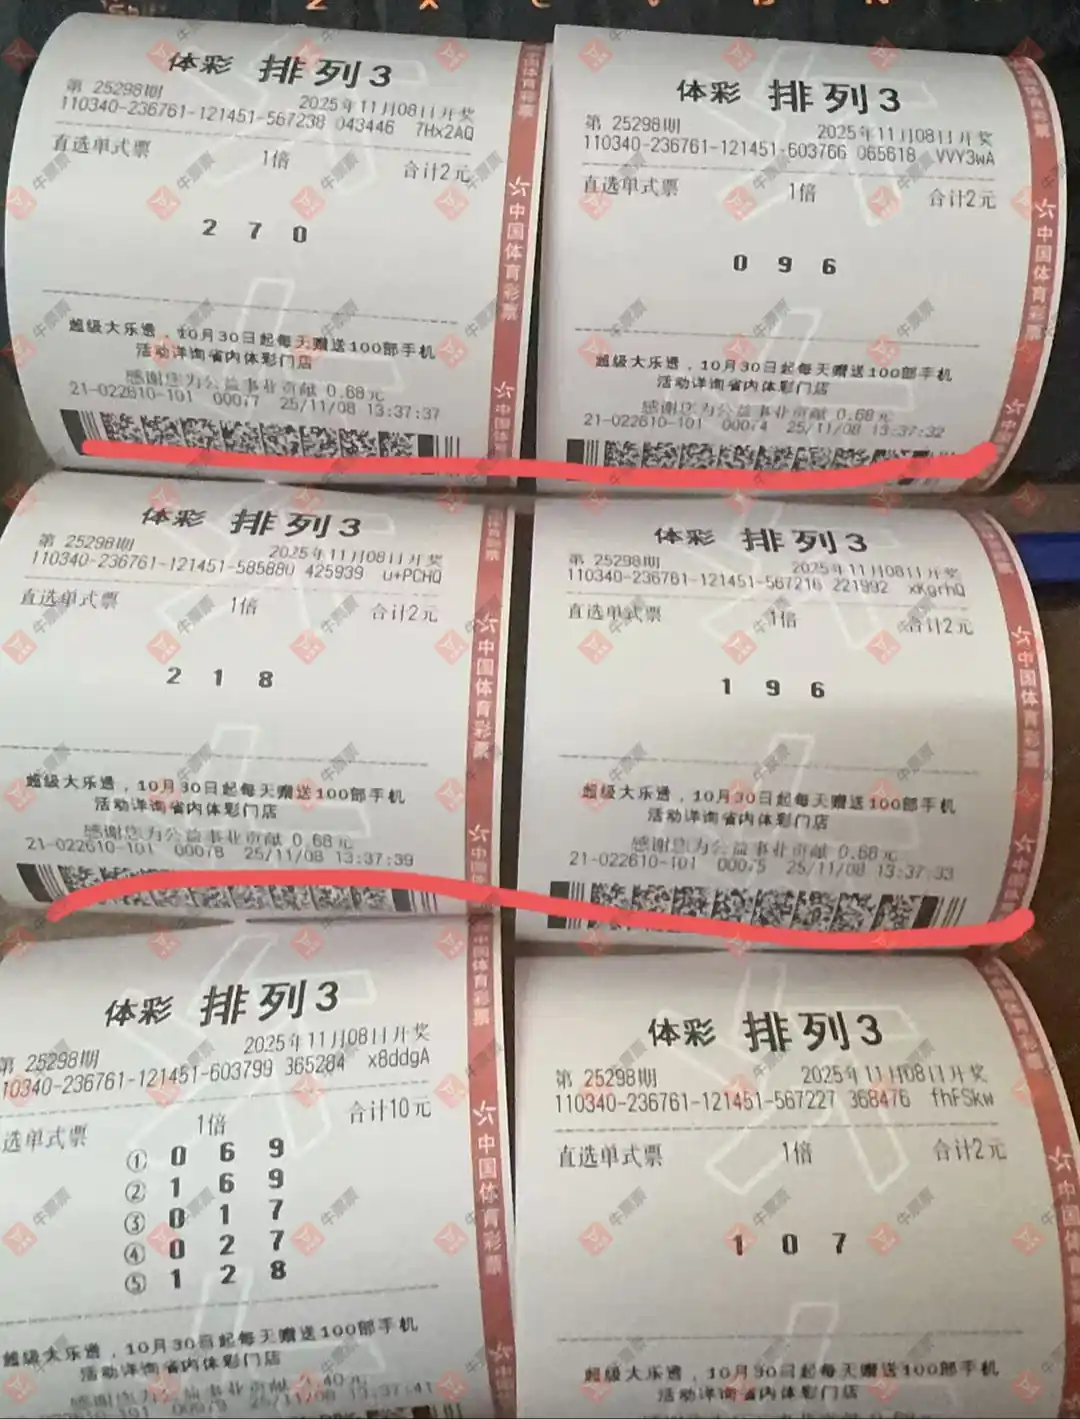 体彩 排列3
第 25298期 2025年11月08日开奖
110340-236761-121451-567238 043446 7Hx2AQ
直选单式票 1倍 合计2元
2 7 0
超级大乐透，10月30日起每天赠送100部手机
活动详询省内体彩门店
感谢您为公益事业贡献 0.68元
21-022610-101 000;7 25/11/08 13:37:37
中国体育彩票
体彩 排列3
第 25298期 2025年11月08日开奖
110340-236761-121451-603766 065618 VVY3wA
直选单式票 1倍 合计2元
0 9 6
超级大乐透，10月30日起每天赠送100部手机
活动详询省内体彩门店
感谢您为公益事业贡献 0.68元
21-022610-101 000;4 25/11/08 13:37:32
中国体育彩票
体彩 排列3
第 25298期 2025年11月08日开奖
110340-236761-121451-585880 425939 u+PCHQ
直选单式票 1倍 合计2元
2 1 8
超级大乐透，10月30日起每天赠送100部手机
活动详询省内体彩门店
感谢您为公益事业贡献 0.68元
21-022610-101 000;8 25/11/08 13:37:39
中国体育彩票
体彩 排列3
第 25298期 2025年11月08日开奖
110340-236761-121451-567216 221992 xKgrhQ
直选单式票 1倍 合计2元
1 9 6
超级大乐透，10月30日起每天赠送100部手机
活动详询省内体彩门店
感谢您为公益事业贡献 0.68元
21-022610-101 000;5 25/11/08 13:37:33
中国体育彩票
体彩 排列3
第 25298期 2025年11月08日开奖
10340-236761-121451-603799 365284 x8ddgA
选单式票 1倍 合计10元
① 0 6 9
② 1 6 9
③ 0 1 7
④ 0 2 7
⑤ 1 2 8
超级大乐透，10月30日起每天赠送100部手机
活动详询省内体彩门店
感谢您为公益事业贡献 .40元
25/11/08 13:37:41
中国体育彩票
体彩 排列3
第 25298期 2025年11月08日开奖
110340-236761-121451-567227 368476 fhFSkw
直选单式票 1倍 合计2元
1 0 7
超级大乐透，10月30日起每天赠送100部手机
活动详询省内体彩门店
牛票票